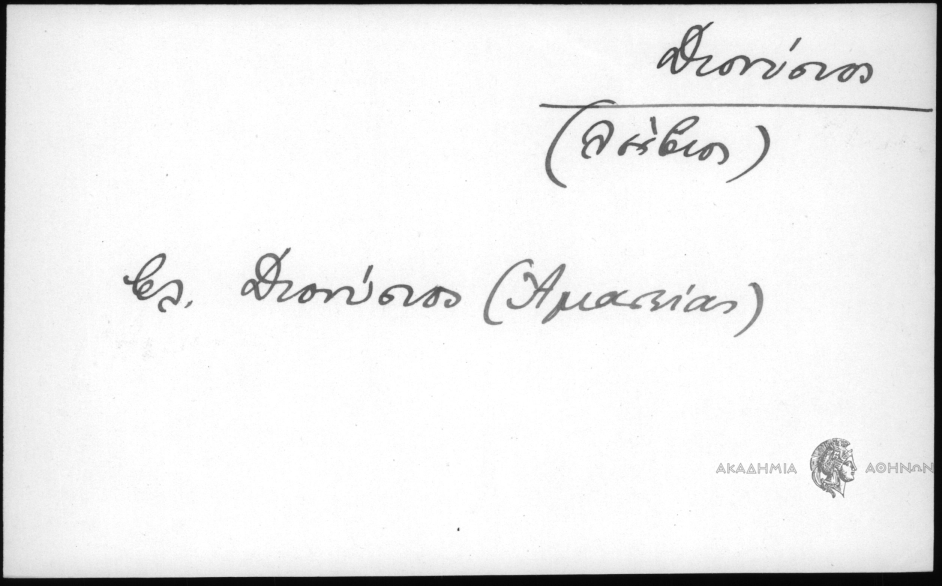 Διονύσιος
(Λέσβιος)
βλ. Διονύσιος (Ἀμασείας)
ΑΚΑΔΗΜΙΑ ΑΘΗΝΩΝ